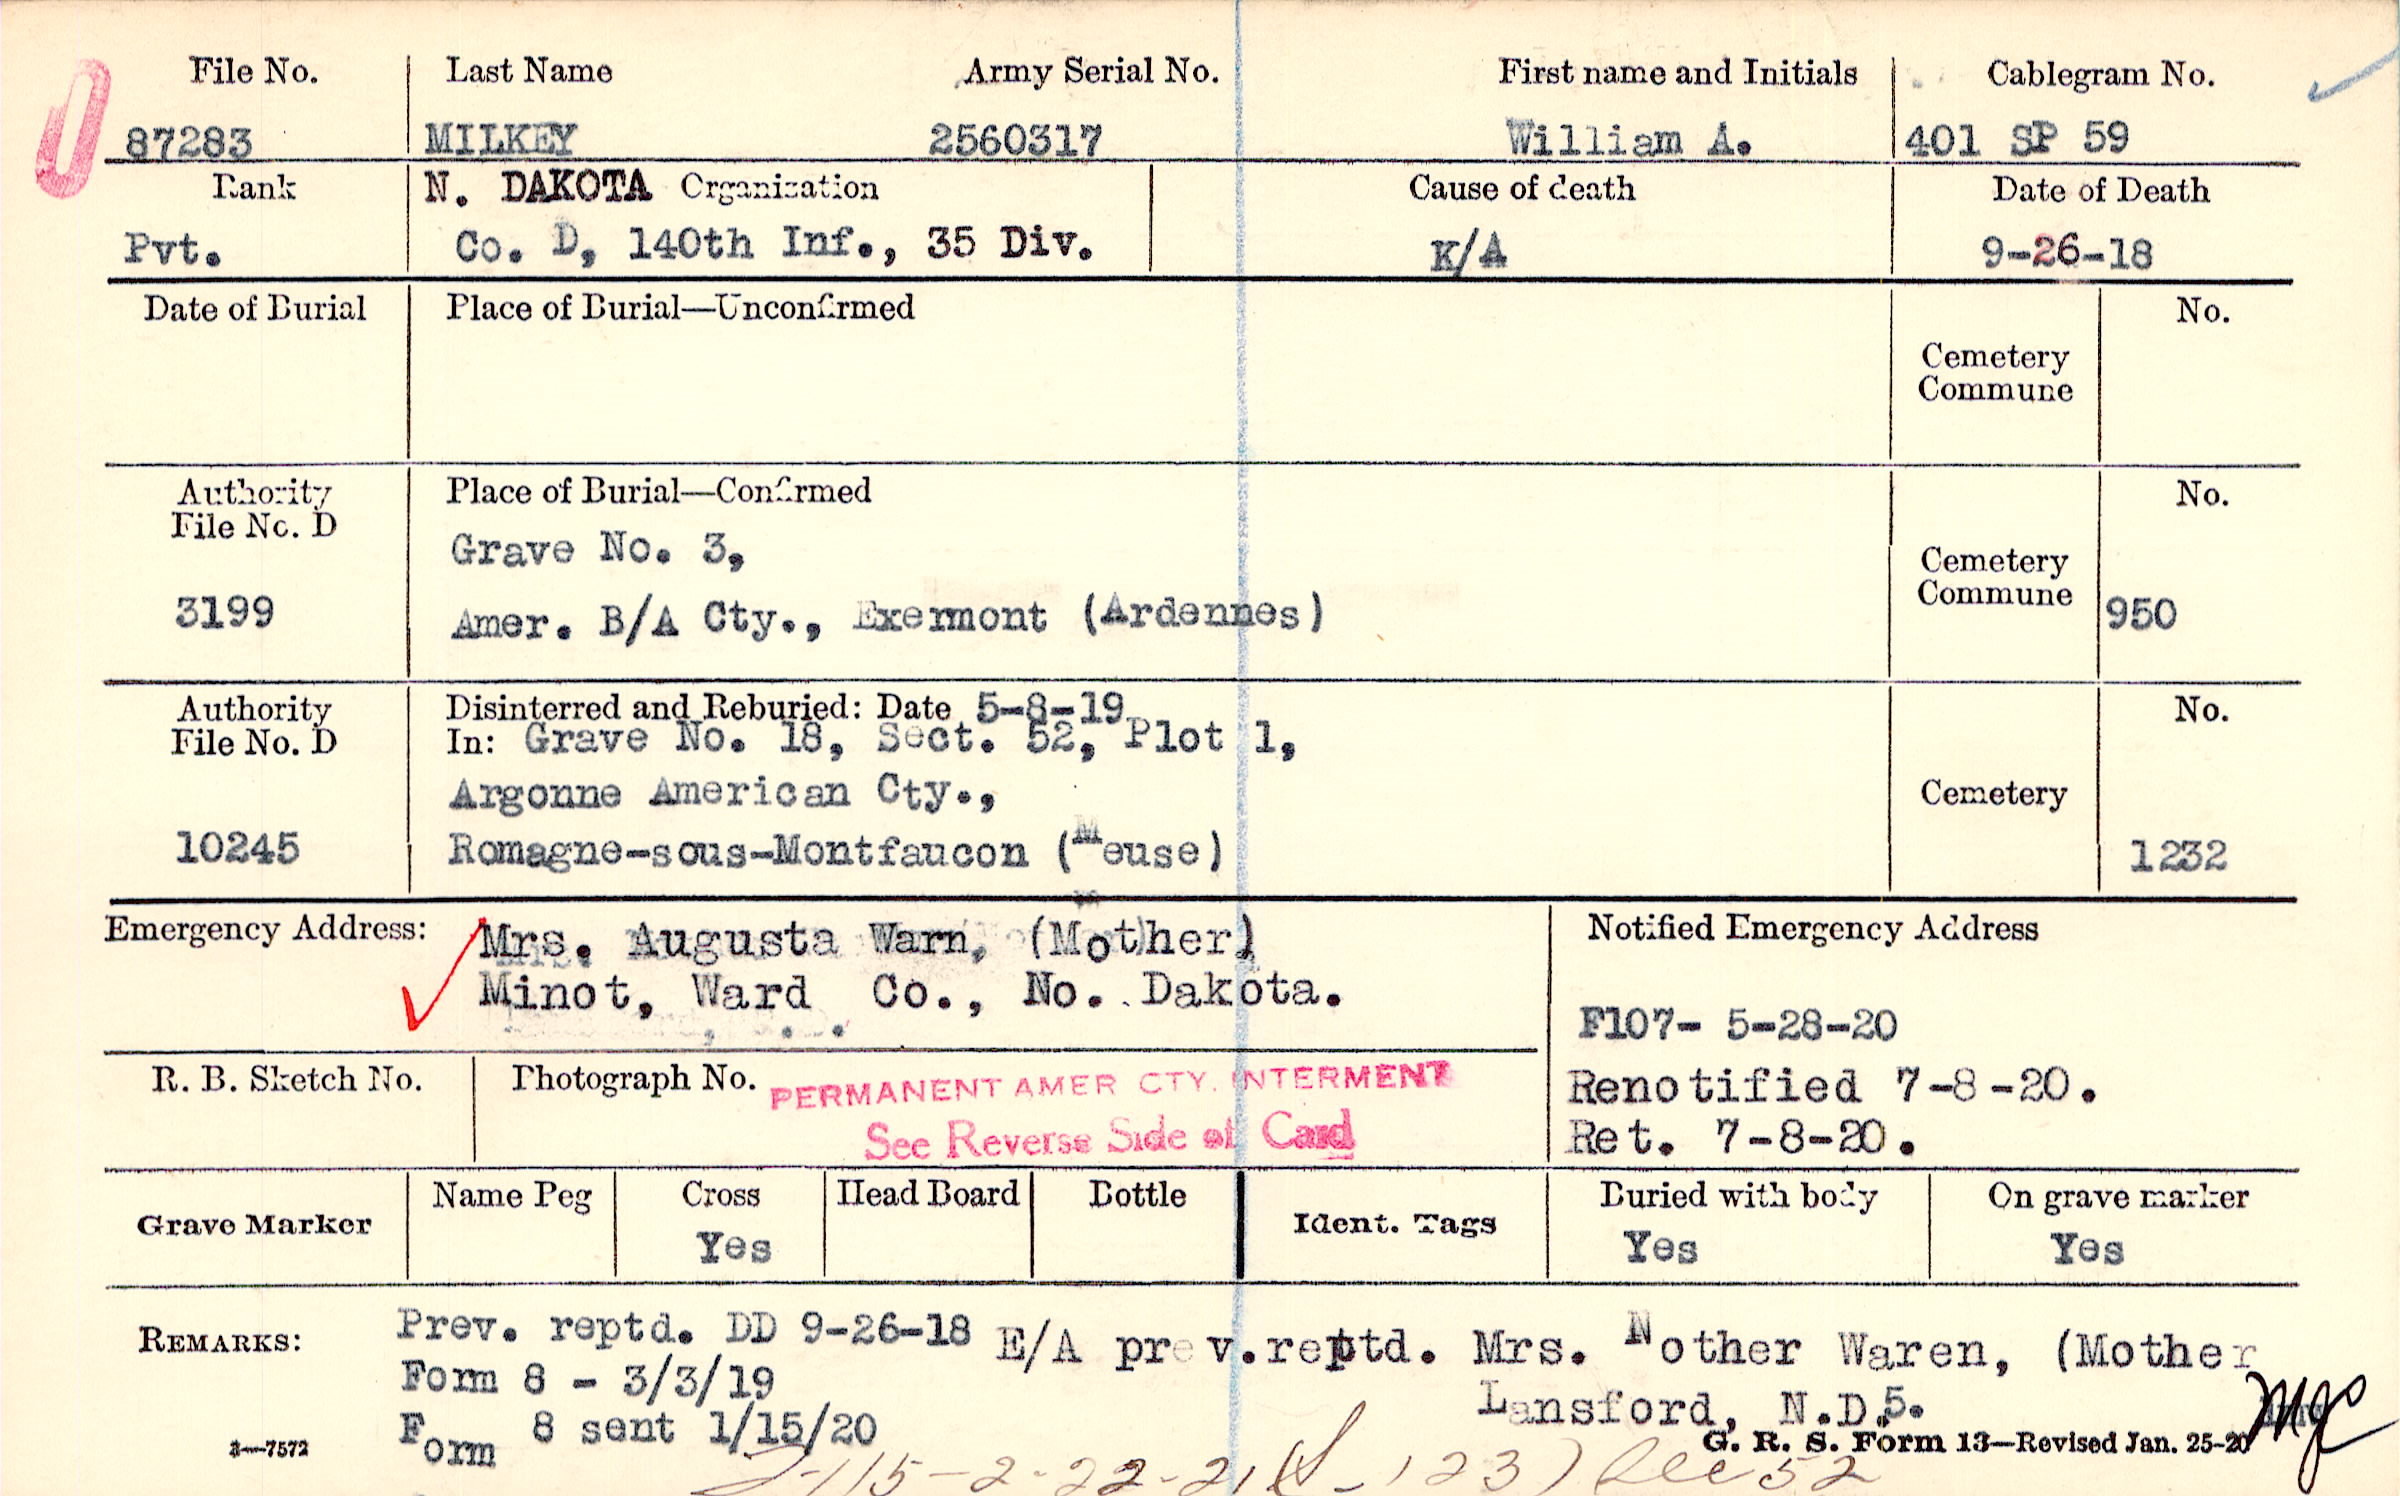 File No. Last Name Army Serial No. First name and Initials Cablegram No.
87283 MILKEY 2560317 William A. 401 SP 59
Rank N. DAKOTA Organization Cause of death Date of Death
Pvt. Co. D, 140th Inf., 35 Div. K/A 9-26-18
Date of Burial Place of Burial—Unconfirmed No.
Cemetery
Commune
Authority Place of Burial—Confirmed No.
File No. D
Grave No. 3,
Cemetery
Commune
3199 Amer. B/A Cty., Exermont (Ardennes) 950
Authority Disinterred and Reburied: Date 5-8-19 No.
File No. D In: Grave No. 18, Sect. 52, Plot 1,
Argonne American Cty., Cemetery
10245 Romagne-sous-Montfaucon (Meuse) 1232
Emergency Address: Mrs. Augusta Warn, (Mother) Notified Emergency Address
Minot, Ward Co., No. Dakota.
F107- 5-28-20
R. B. Sketch No. Photograph No. PERMANENT AMER CTY. INTERMENT Renotified 7-8-20.
See Reverse Side of Card Ret. 7-8-20.
Grave Marker Name Peg Cross Head Board Bottle Ident. Tags Buried with body On grave marker
Yes Yes Yes
REMARKS: Prev. reptd. DD 9-26-18 E/A prev.reptd. Mrs. Nother Waren, (Mother
Form 8 - 3/3/19 Lansford, N.D.
Form 8 sent 1/15/20
3—7572 G. R. S. Form 13—Revised Jan. 25-20
115-2-22-21 123) Sec 52